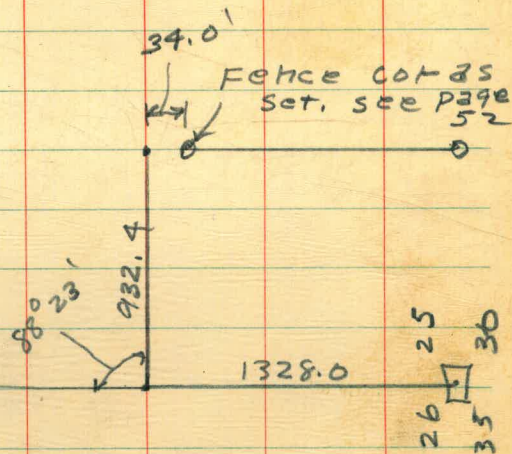 34.0'
Fence cor as
set. see page
52
932.4
88° 23'
1328.0
25
30
26
35